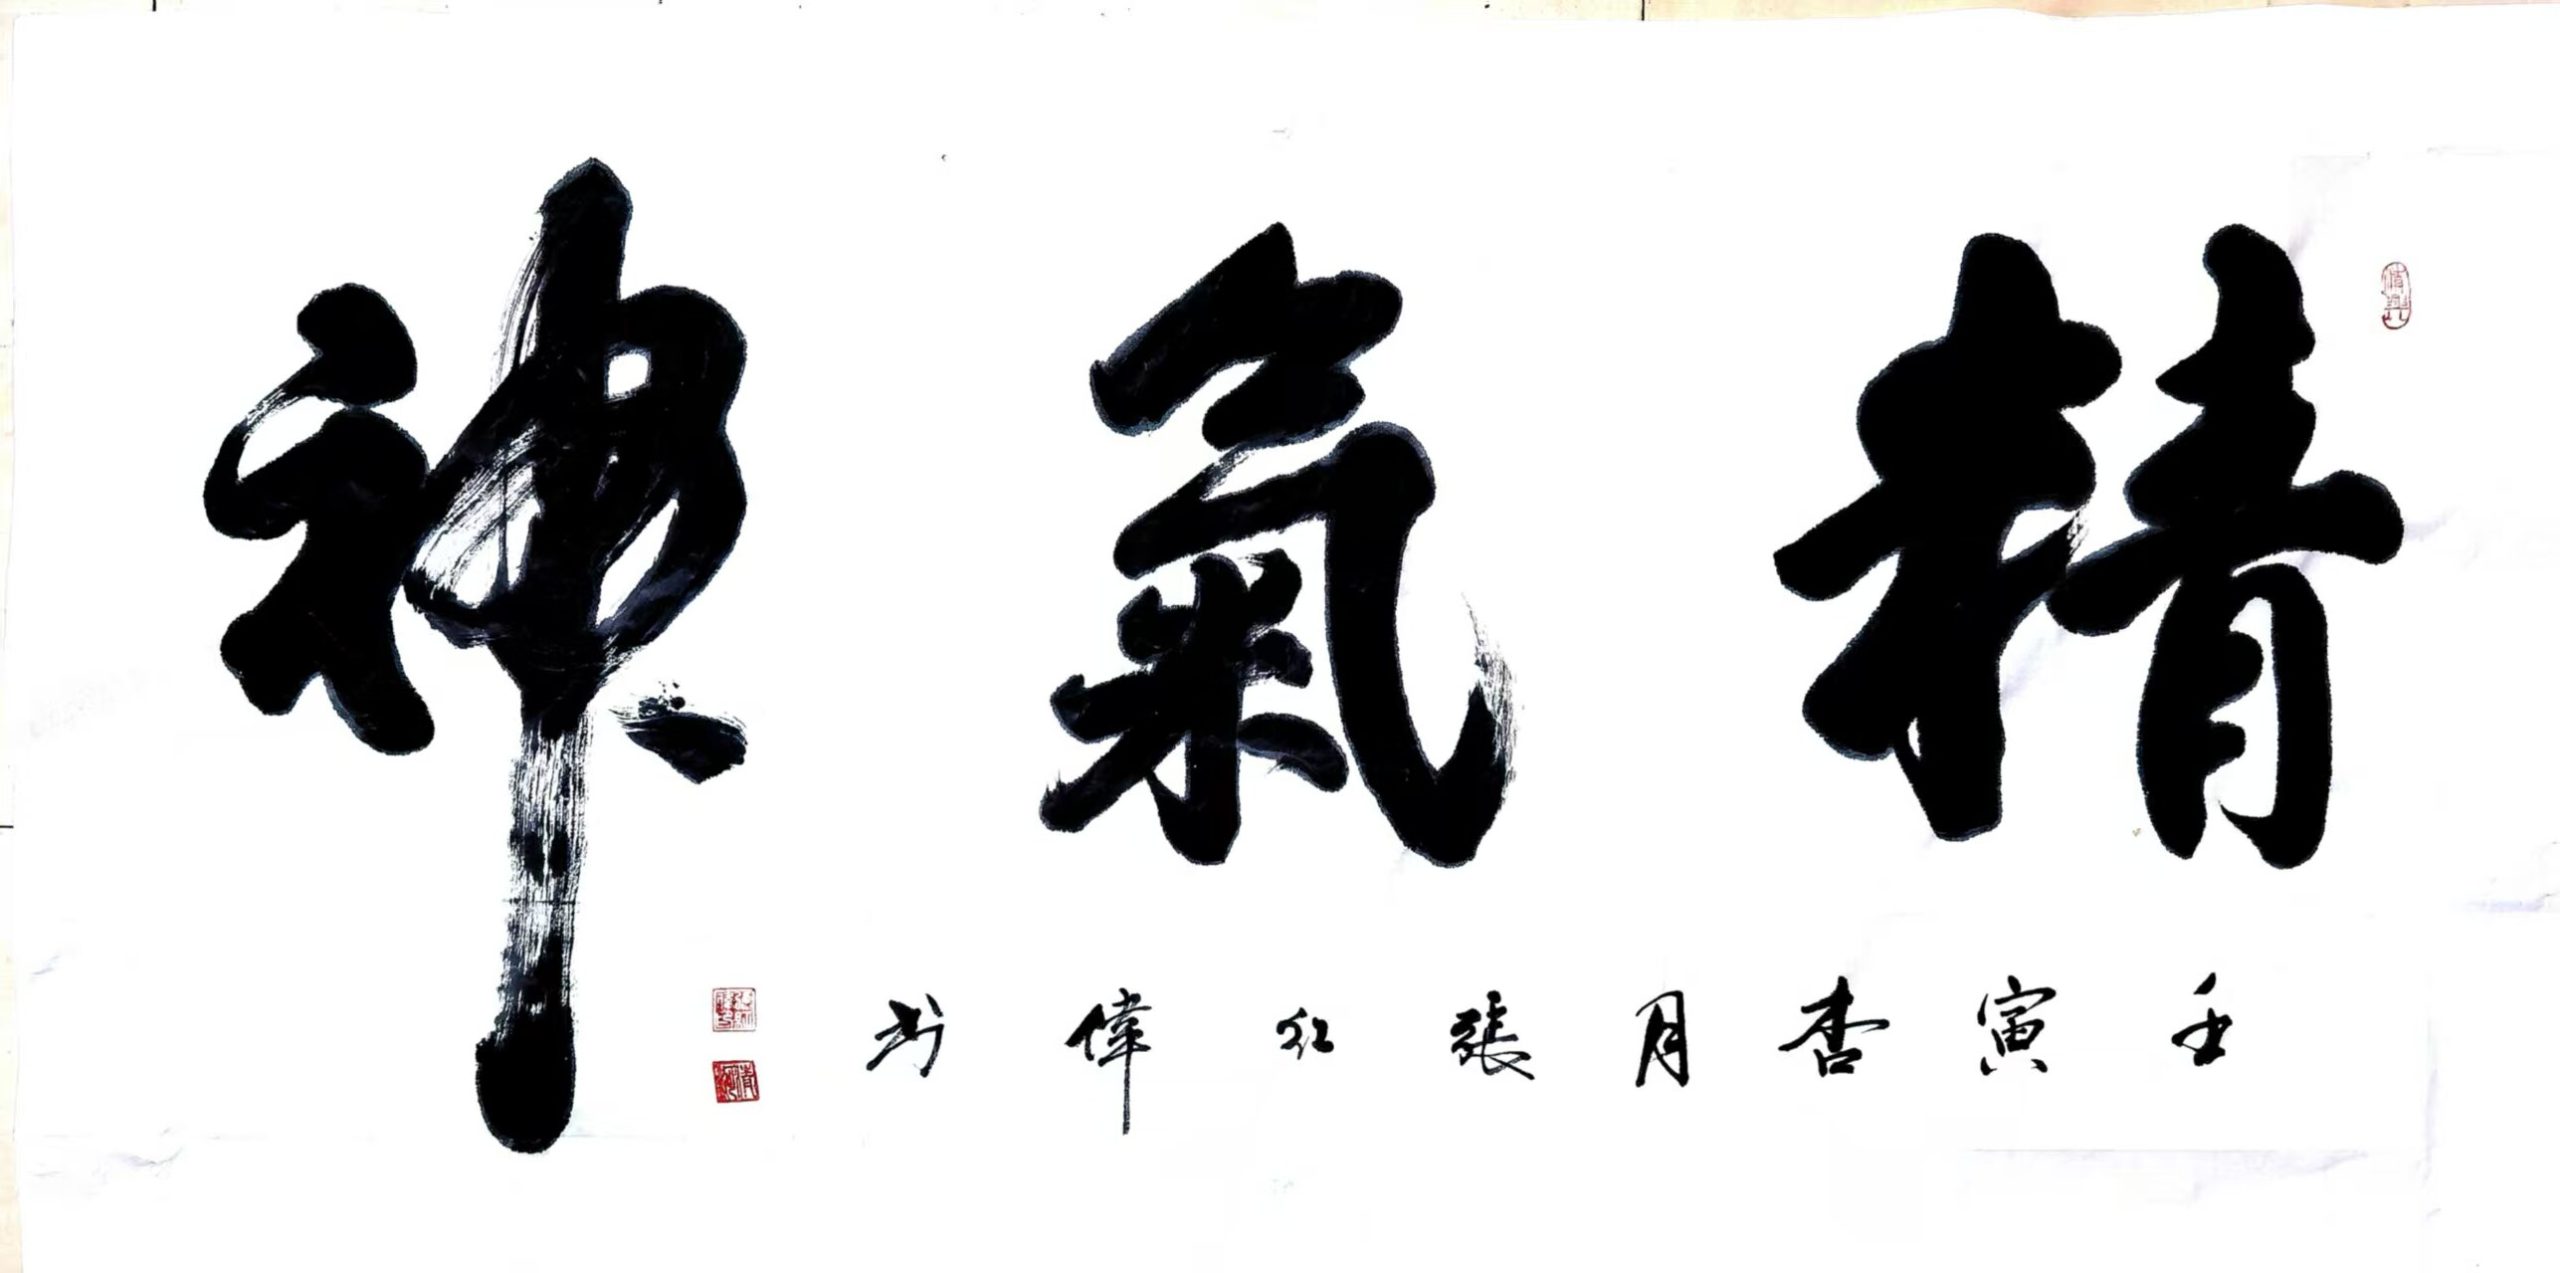 精氣神
壬寅杏月張紅偉书